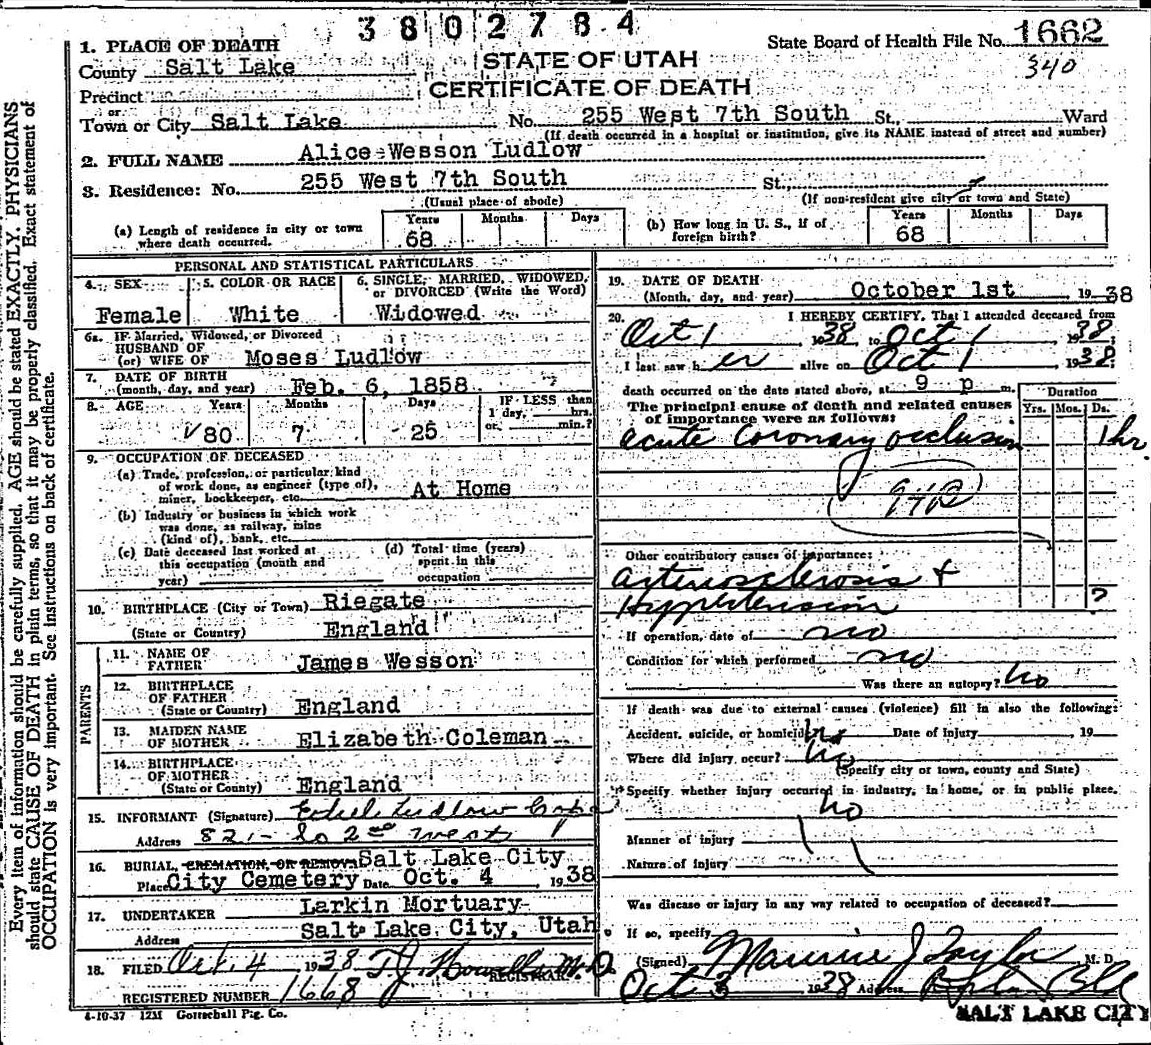 3802784
State Board of Health File No. 1662
340
1. PLACE OF DEATH
County Salt Lake
STATE OF UTAH
CERTIFICATE OF DEATH
Precinct
or
Town or City Salt Lake No. 255 West 7th South St., Ward
(If death occurred in a hospital or institution, give its NAME instead of street and number)
2. FULL NAME Alice Wesson Ludlow
3. Residence: No. 255 West 7th South St.,
(Usual place of abode) (If non-resident give city or town and State)
(a) Length of residence in city or town where death occurred. Years 68 Months Days
(b) How long in U. S., if of foreign birth? Years 68 Months Days
PERSONAL AND STATISTICAL PARTICULARS
4. SEX Female
5. COLOR OR RACE White
6. SINGLE, MARRIED, WIDOWED, or DIVORCED (Write the Word) Widowed
6a. IF Married, Widowed, or Divorced
HUSBAND OF
(or) WIFE OF Moses Ludlow
7. DATE OF BIRTH
(month, day, and year) Feb. 6, 1858
8. AGE Years Months Days IF LESS than
1 day, hrs.
or min.?
80 7 25
9. OCCUPATION OF DECEASED
(a) Trade, profession, or particular kind
of work done, as engineer (type of),
miner, bookkeeper, etc. At Home
(b) Industry or business in which work
was done, as railway, mine
(kind of), bank, etc.
(c) Date deceased last worked at
this occupation (month and
year)
(d) Total time (years)
spent in this
occupation
10. BIRTHPLACE (City or Town) Riegate
(State or Country) England
PARENTS
11. NAME OF
FATHER James Wesson
12. BIRTHPLACE
OF FATHER
(State or Country) England
13. MAIDEN NAME
OF MOTHER Elizabeth Coleman
14. BIRTHPLACE
OF MOTHER
(State or Country) England
15. INFORMANT (Signature) Ethel Ludlow
Address 821 - So 2nd West
16. BURIAL, CREMATION, OR REMOVAL Salt Lake City
Place City Cemetery Date Oct. 4, 1938
17. UNDERTAKER Larkin Mortuary
Address Salt Lake City, Utah.
18. FILED Oct. 4, 1938 T J Howells M.D.
REGISTRAR
REGISTERED NUMBER 1668
4-10-37 12M Gottschall Ptg. Co.
19. DATE OF DEATH
(Month, day, and year) October 1st 1938
20. I HEREBY CERTIFY, That I attended deceased from
Oct 1 1938, to Oct 1 1938;
I last saw her alive on Oct 1 1938;
death occurred on the date stated above, at 9 p m.
The principal cause of death and related causes
of importance were as follows:
Duration
Yrs. Mos. Ds.
acute coronary occlusion 1 hr.
Other contributory causes of importance:
arteriosclerosis +
Hyppertension ?
If operation, date of no
Condition for which performed no
Was there an autopsy? No
If death was due to external causes (violence) fill in also the following:
Accident, suicide, or homicide no Date of injury , 19
Where did injury occur? No
(Specify city or town, county and State)
Specify whether injury occurred in industry, in home, or in public place.
No
Manner of injury
Nature of injury
Was disease or injury in any way related to occupation of deceased?
If so, specify
(Signed) Maurice J Taylor M. D.
Oct 3 1938 Address
SALT LAKE CITY
Every item of information should be carefully supplied. AGE should be stated EXACTLY. PHYSICIANS
should state CAUSE OF DEATH in plain terms, so that it may be properly classified. Exact statement of
OCCUPATION is very important. See instructions on back of certificate.